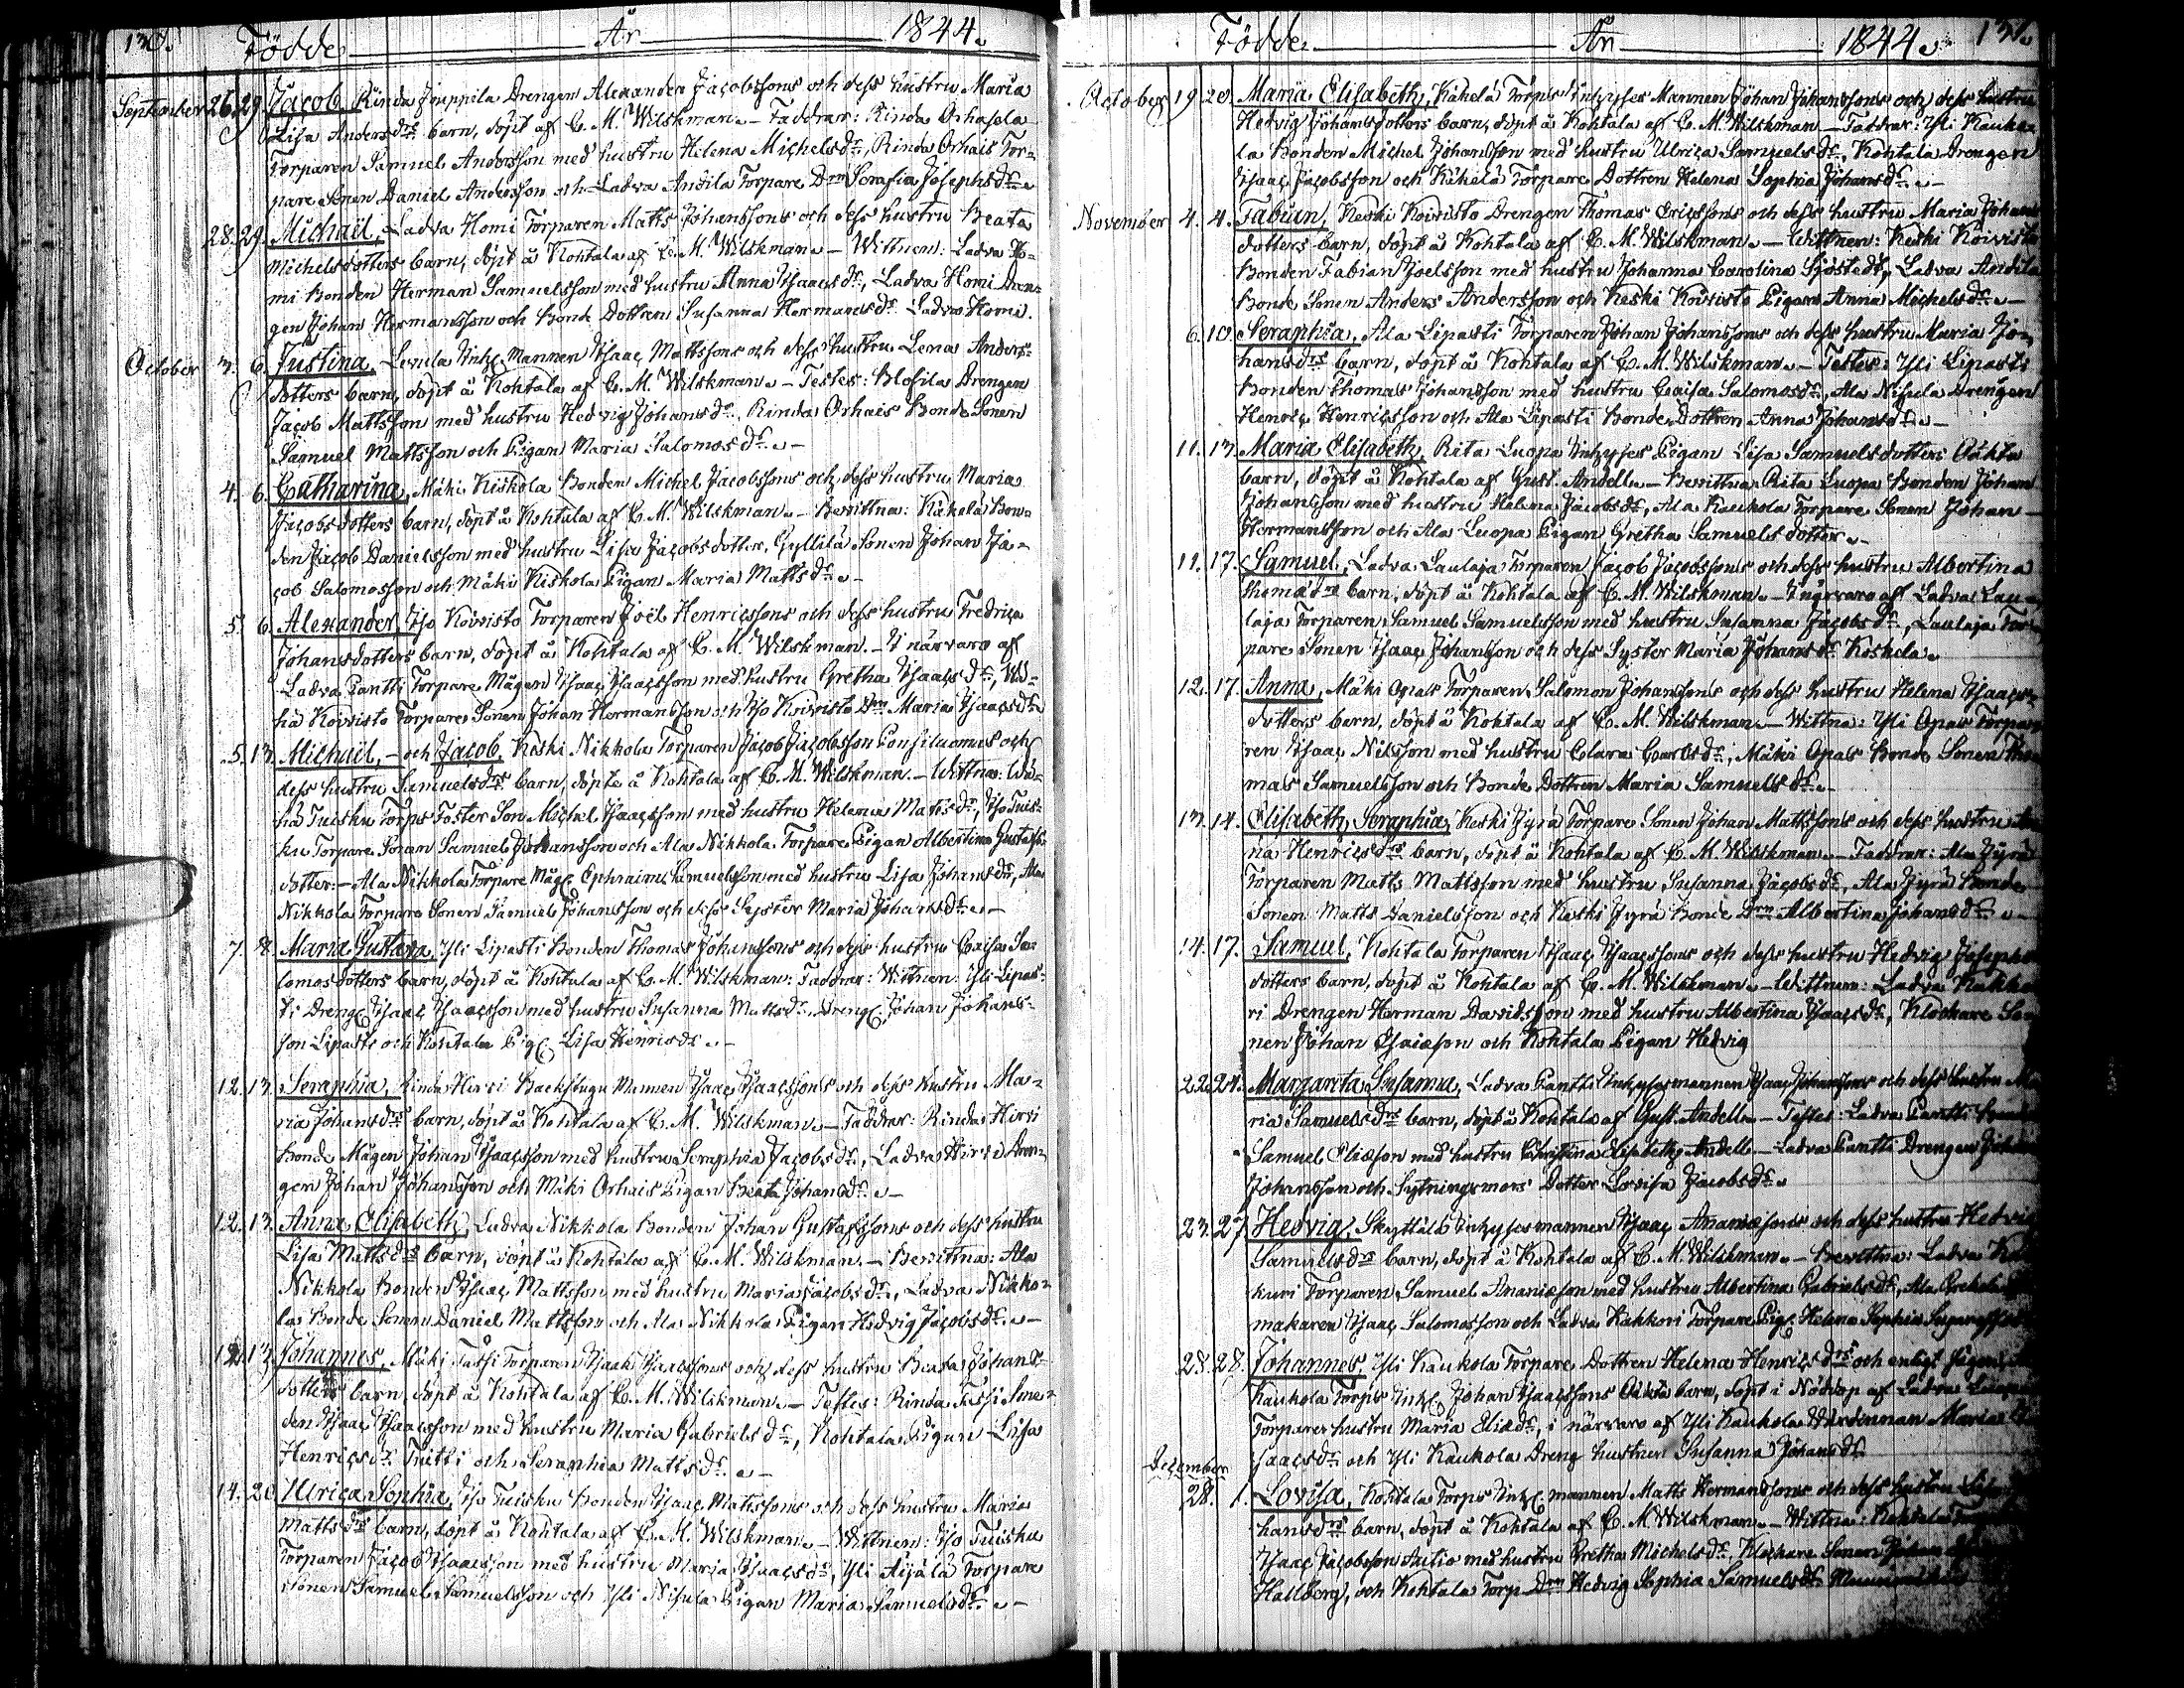 130. Födde År 1844.
September 26. 29. Jacob, Rinda Jouppila Drengen Alexander Jacobssons och dess hustru Maria
Lisa Andersdrs barn, döpt af C. M. Wilskman. – Faddrar: Rinda Orhapola
Torparen Samuel Andersson med hustru Helena Michelsdr, Rinda Orhais Tor-
pare Sonen Daniel Andersson och Ladva Andila Torpare Drn Serafia Josephsdr. –
28. 29. Michaël, Ladva Homi Torparen Matts Johanssons och dess hustru Beata
Michelsdotters barn, döpt å Kohtala af C. M. Wilskman. – Wittnen: Ladva Ho-
mi Bonden Herman Samuelsson med hustru Anna Isaacsdr, Ladva Homi Dren-
gen Johan Hermansson och Bonde Dottren Susanna Hermansdr Ladva Homi.
October 3. 6. Justina, Levula Inhs Mannen Isaac Mattssons och dess hustru Lena Anders-
dotters barn, döpt å Kohtala af C. M. Wilskman. – Testes: Blofila Drengen
Jacob Mattsson med hustru Hedvig Johansdr, Rinda Orhais Bonde Sonen
Samuel Mattsson och Pigan Maria Salomosdr. –
4. 6. Catharina, Mäki Kiskola Bonden Michel Jacobssons och dess hustru Maria
Jacobsdotters barn, döpt å Kohtala af C. M. Wilskman. – Bevittna: Käkelä Bon-
den Jacob Danielsson med hustru Lisa Jacobsdotter, Gyllilä Sonen Johan Ja-
cob Salomosson och Mäki Kiskola Pigan Maria Mattsdr. –
5. 6. Alexander, Iso Koivisto Torparen Joël Henricssons och dess hustru Fredrica
Johansdotters barn, döpt å Kohtala af C. M. Wilskman. – I närvaro af
Ladva Pantti Torpare Mågen Isaac Isaacsson med hustru Gretha Isaacsdr, Wä-
hä Koivisto Torpare Sonen Johan Hermansson och Iso Koivisto Drn Maria Isaacsdr
5. 13. Michaël, – och Jacob, Keski Nikkola Torparen Jacob Jacobsson och
dess hustru Samuelsdrs barn, döpte å Kohtala af C. M. Wilskman. – Wittna: Wä-
hä Tuisku Torps Foster Son Michel Isaacsson med hustru Helena Mattsdr, Iso Tuis-
ku Torpare Sonen Samuel Johansson och Ala Nikkola Torpare Pigan Albertina Gustafs-
dotter: – Ala Nikkola Torpare Måg Ephraim Samuelsson med hustru Lisa Johansdr, Ala
Nikkola Torpare Sonen Samuel Johansson och dess Syster Maria Johansdr. –
7. 8. Maria Gustava, Yli Lipasti Bonden Thomas Johanssons och dess hustru Caisa Sa-
lomosdotters barn, döpt å Kohtala af C. M. Wilskman: Faddrar: Wittnen: Yli Lipas-
ti Dreng Isaac Isaacsson med hustru Susanna Mattsdr, Dreng Johan Johans-
son Lipasti och Kohtala Pig. Lisa Henricsdr. –
12. 13. Seraphia, Rinda Hirvi Backstugu Mannen Isaac Isaacssons och dess hustru Ma-
ria Johansdrs barn, döpt å Kohtala af C. M. Wilskman. – Faddrar: Rinda Hirvi
Bonde Mågen Johan Isaacsson med hustru Seraphia Jacobsdr, Ladva Hirvi Dren-
gen Johan Johansson och Mäki Orhais Pigan Beata Johansdr. –
12. 13. Anna Elisabeth, Ladva Nikkola Bonden Johan Gustafssons och dess hustru
Lisa Mattsdrs barn, döpt å Kohtala af C. M. Wilskman. – Bevittna: Ala
Nikkola Bonden Isaac Mattsson med hustru Maria Jacobsdr, Ladva Nikko-
la Bonde Sonen Daniel Mattsson och Ala Nikkola Pigan Hedvig Jacobsdr. –
12. 13. Johannes, Mäki Tassi Torparen Isaac Isaacssons och dess hustru Beata Johans-
dotters barn, döpt å Kohtala af C. M. Wilskman. – Testes: Rinda Tassi Sme-
den Isaac Isaacsson med hustru Maria Gabrielsdr, Kohtala Pigan Lisa
Henricsdr Tuitti och Seraphia Mattsdr. –
14. 20. Ulrica Sophia, Iso Tuisku Bonden Isaac Mattssons och dess hustru Maria
Mattsdrs barn, döpt å Kohtala af C. M. Wilskman. – Wittnen: Iso Tuisku
Torparen Jacob Isaacsson med hustru Maria Isaacsdr, Yli Äijälä Torpare
Sonen Samuel Samuelsson och Yli Nisula Pigan Maria Samuelsdr. –
Födde År 1844. 131.
October 19. 20. Maria Elisabeth, Käkelä Torps Inhyses Mannen Johan Johanssons och dess hustru
Hedvig Johansdotters barn, döpt å Kohtala af C. M. Wilskman. – Faddrar: Yli Kauko-
la Bonden Michel Johansson med hustru Ulrica Samuelsdr, Kohtala Drengen
Isaac Jacobsson och Käkelä Torpare Dottren Helena Sophia Johansdr. –
November 4. 4. Fabian, Keski Koivisto Drengen Thomas Ericssons och dess hustru Maria Johans
dotters barn, döpt å Kohtala af C. M. Wilskman. – Wittnen: Keski Koivisto
Bonden Fabian Joelsson med hustru Johanna Carolina Sjöstedt, Ladva Andila
Bonde Sonen Anders Andersson och Keski Koivisto Pigan Anna Michelsdr. –
6. 10. Seraphia, Ala Lipasti Torparen Johan Johanssons och dess hustru Maria Jo-
hansdrs barn, döpt å Kohtala af C. M. Wilskman. – Testes: Yli Lipasti
Bonden Thomas Johansson med hustru Caisa Salomosdr, Ala Nisula Drengen
Henric Henricsson och Ala Lipasti Bonde Dottren Anna Johansdr. –
11. 13. Maria Elisabeth, Rita Luopa Inhyses Pigan Lisa Samuelsdotters Oäkta
barn, döpt å Kohtala af Gust. Andell. – Bevittna: Rita Luopa Bonden Johan
Johansson med hustru Helena Jacobsdr, Ala Kaukola Torpare Sonen Johan
Hermansson och Ala Luopa Pigan Gretha Samuelsdotter. –
11. 17. Samuel, Ladva Laulaja Torparen Jacob Jacobssons och dess hustru Albertina
Thomædrs barn, döpt å Kohtala af C. M. Wilskman. – I närvaro af Ladva Lau-
laja Torparen Samuel Samuelsson med hustru Susanna Jacobsdr, Laulaja Tor-
pare Sonen Isaac Johansson och dess Syster Maria Johansdr Koskela.
12. 17. Anna, Mäki Opas Torparen Salomon Johanssons och dess hustru Helena Isaacs-
dotters barn, döpt å Kohtala af C. M. Wilskman. – Wittna: Yli Opas Torpa-
ren Isaac Nilsson med hustru Clara Carlsdr, Mäki Opas Bonde Sonen Tho-
mas Samuelsson och Bonde Dottren Maria Samuelsdr. –
13. 14. Elisabeth Seraphia, Keski Jyrä Torpare Sonen Johan Mattssons och dess hustru An
na Henricsdrs barn, döpt å Kohtala af C. M. Wilskman. – Faddrar: Ala Jyrä
Torparen Matts Mattsson med hustru Susanna Jacobsdr, Ala Jyrä Bonde
Sonen Matts Danielsson och Keski Jyrä Bonde Drn Albertina Johansdr. –
14. 17. Samuel, Kohtala Torparen Isaac Isaacssons och dess hustru Hedvig Josephs
dotters barn, döpt å Kohtala af C. M. Wilskman. – Wittnen: Ladva Kakko
ri Drengen Herman Davidsson med hustru Albertina Isaacsdr, Klockare So
nen Johan Esaiæson och Kohtala Pigan Hedvig
22. 24. Margareta Susanna, Ladva Pantti Inhysesmannen Isaac Johanssons och dess hustru Ma
ria Samuelsdrs barn, döpt å Kohtala af Gust. Andell. – Testes: Ladva Pantti
Samuel Eliæson med hustru Christina Elisabeth Andell – Ladva Pantti Drengen Johan
Johansson och Sytningsmors Dotter Lovisa Jacobsdr.
23. 27. Hedvig, Skyttälä Inhysesmannen Isaac Ananiæsons och dess hustru Hedvig
Samuelsdrs barn, döpt å Kohtala af C. M. Wilskman. – Bevittna: Ladva
kuri Torparen Samuel Ananiæson med hustru Albertina Gabrielsdr, Ala
makaren Isaac Salomosson och Ladva Kakkori Torpare Pig. Helena Sophia
28. 28. Johannes, Yli Kaukola Torpare Dottren Helena Henricsdrs och enligt
Kaukola Torps Inhs Johan Isaacssons Oäkta barn, döpt i Nöddop af Ladva
Torpare hustru Maria Eliædr, i närvaro af Yli Kaukola Värdinnan Maria
saacsdr och Yli Kaukola Dreng hustrun Susanna Johansdr
December
28. 1. Lovisa, Kohtala Torps Inhs mannen Matts Hermanssons och dess hustru
hansdrs barn, döpt å Kohtala af C. M. Wilskman. – Wittna: Kohtala
Isaac Jacobsson Autio med hustru Gretha Michelsdr, Klockare Sonen Johan
Hallberg, och Kohtala Torp. Drn Hedvig Sophia Samuelsdr